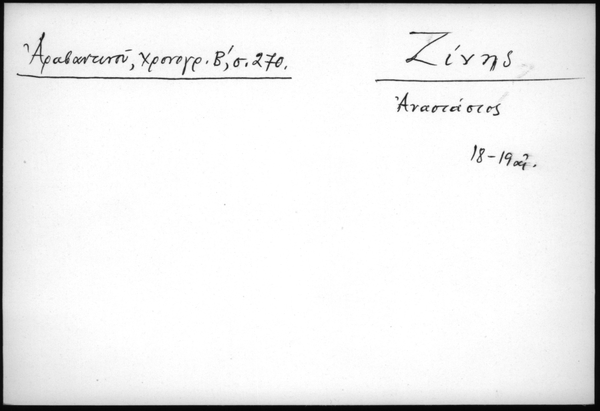 Ἀραβαντινοῦ, Χρονογρ. Β΄, σ. 270.
Ζίνης
Ἀναστάσιος
18-19 αἰ.